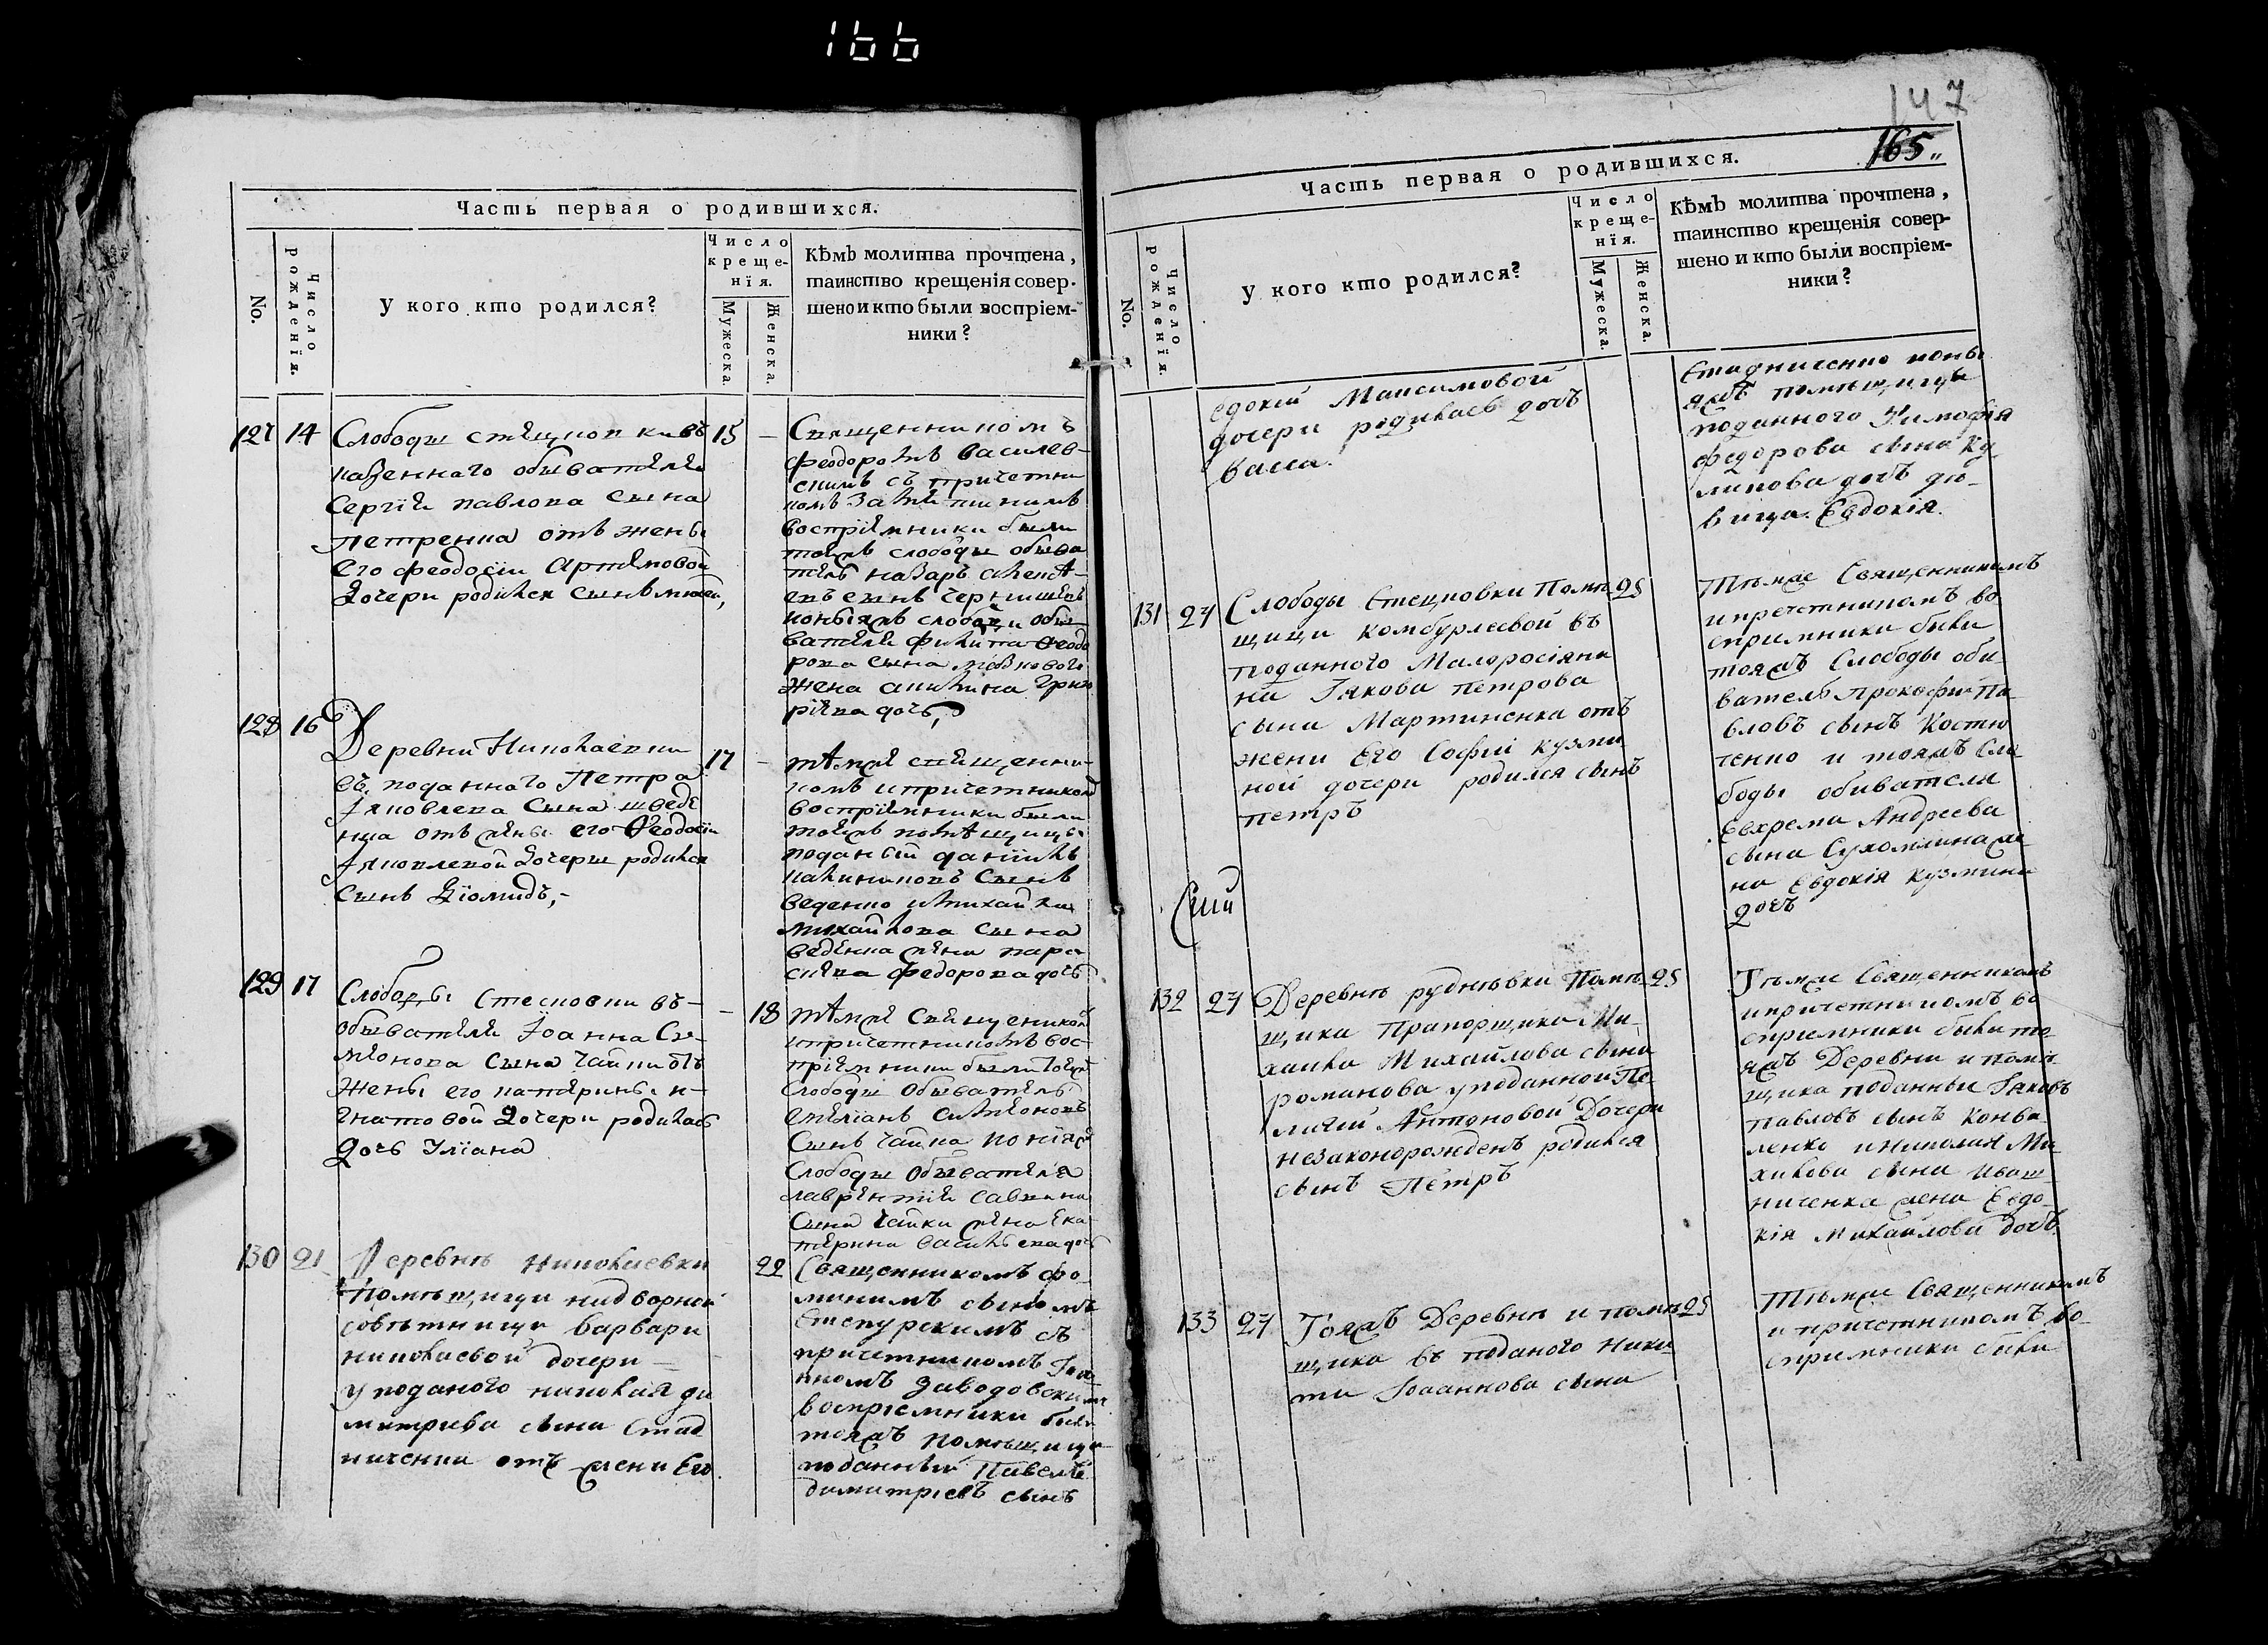 166
Часть первая о родившихся.
No.
Число рожденїя.
У кого кто родился?
Число
креще-
нїя.
Мужеска.
Женска.
Кѣмъ молитва прочтена,
таинство крещенія совер-
шено и кто были воспріем-
ники?
127 14
15 -
казеннаго обывателя
Сергїя павлова сына
петренка отъ жены
его феодосіи Артемовой
дочери родился сынъ
Священникомъ
феодоромъ василев-
скимъ съ причетни
воспріемники были
тояжъ слободы обыва
тель назаръ
сынъ
слободи обы
вателя филипа феодо
рова сына
жена акилина григо
ріева дочь,
128 16
17 -
Деревни Николаевки
въ поданнаго Петра
Іяковлева сына шведе
нка отъ жены его Феодосіи
Іяковлевой дочери родился
сынъ Діомидъ,-
тѣмже священни-
комъ и причетникомъ
воспріемники были
тояжъ помѣщицы
поданый даніилъ
сынъ
веденко и михайла
михайлова сына
веденка жена пара
скева федорова дочь
129 17
- 18
Слободы Стецковки въ-
обывателя Іоанна Си-
меонова сына Чайки отъ
жены его катерины и-
гнатовой дочери родилась
дочь Улїана
тѣмже Священикомъ
и причетникомъ вос-
пріемники были тояжъ
слободы обыватель
емеліанъ симеоновъ
сынъ чайка
слободы обывателя
лаврентія саввина
сына чайки жена ека
терина василева дочь
130 21
22
Деревнѣ николаевки
помѣщици надворной
совѣтници варвари
николаевой дочери -
у поданого николая ди
митрива сына стад
ниченки отъ жени Его
Священникомъ фо
минимъ сыномъ
Степурскимъ съ
причетникомъ Іоа
нномъ Заводовскимъ
воспріемники были
тояжъ помѣщици
поданный Павелъ
димитріевъ сынъ
147
165.
Часть первая о родившихся.
No.
Число рожденїя.
У кого кто родился?
Число
креще-
нїя.
Мужеска.
Женска.
Кѣмъ молитва прочтена,
таинство крещенія совер-
шено и кто были воспріем-
ники?
едокіи Максимовой
дочери родилась дочъ
васса.
Стадниченко
яжъ помѣщици
поданного Тимофія
федорова сына Ку
ликова дочъ дѣ-
вица Евдокія.
131 27
25
Слободы Стецковки Помѣ
щици Комбурлеевой въ
поданного Малоросіяни
на Іякова петрова
сына Мартиненка отъ
жени Его Софіи Кузми
ной дочери родился сынъ
петръ
Тѣмже Священникомъ
и причетникомъ во
сприемники были
тояжъ Слободы оби
ватель Прокофи Па
вловъ сынъ Костю
ченко и тояжъ Сло
боды обивателя
Евхрема Андреева
сына Сухомлина же
на Евдокія Кузмина
дочъ
132 27
25
Деревнѣ рудневки Помѣ
щика Прапорщика Ми
хаила Михайлова сына
романова у подданной Пе
лагіи Антоновой Дочери
незаконорожденъ родился
сынъ Петръ
Тѣмже Священникомъ
и причетникомъ во
сприемники были то
яжъ Деревни и помѣ
щика поданный Іяковъ
Павловъ сынъ Конва
ленко и николая Ми
хайлова сына Иваш
ниченка жена Евдо
кія Михайлова дочъ.
133 27
25
Тояжъ Деревнѣ и помѣ
щика въ поданого Ники
ти Іоаннова сына
Тѣмже Священникомъ
и причетникомъ во-
сприемники были